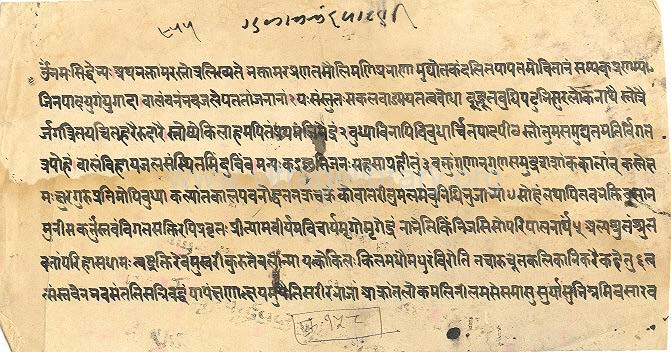 ७५५
नमःसिद्धेभ्यः अथभक्तामरस्तोत्रलिख्यते भक्तामरप्रणतमौलिमणिप्रभाणा मुद्योतकंदलितपापतमोवितानं सम्यक्प्रणम्य
जिनपादयुगंयुगादा वालंबनंभवजलेपततांजनानां १ यःसंस्तुतःसकलवाङ्मयतत्वबोधा दुद्भूतबुधिपटुभिःसुरलोकनाथैः स्तोत्रै
र्जगत्रितयचित्तहरैरुदारैः स्तोष्येकिलाहमपितंप्रथमंजिनेंद्रं २ बुध्याविनापिविबुधार्चितपादपीठ स्तोतुंसमुद्यतमतिर्विगत
त्रपोहं बालंविहायजलसंस्थितमिंदुबिंब मन्यःकइछतिजनःसहसाग्रहीतुं ३ वक्तुंगुणान्गुणसमुद्रशशांककांतान् कस्तेक्ष
मःसुरगुरुप्रतिमोपिबुध्या कल्पांतकालपवनोद्धतनक्रचक्रं कोवातरीतुमलमंबुनिधिंभुजाभ्यां ४ सोहंतथापितवभक्तिवसान्
मुनीस कर्तुंस्तवंविगतसक्तिरपिप्रवृतः प्रीत्यात्मवीर्यमविचार्यमृगोमृगेंद्रं नाभ्येतिकिंनिजसिसोःपरिपालनार्थं ५ अल्पश्रुतंश्रुत
वतांपरिहासधाम त्वद्भक्तिरेवमुखरीकुरुतेबलान्मां यत्कोकिलःकिलमधौमधुरंविरौति तच्चारुचूतकलिकानिकरैकहेतु ६ त्व
त्संस्तवेनभवसंततिसन्निबद्धं पापंक्षणात्क्षयमुपैतिसरीरभाजां आक्रांतलोकमलिनीलमसेसमासु सूर्यांसुभिन्नमिवसार्व